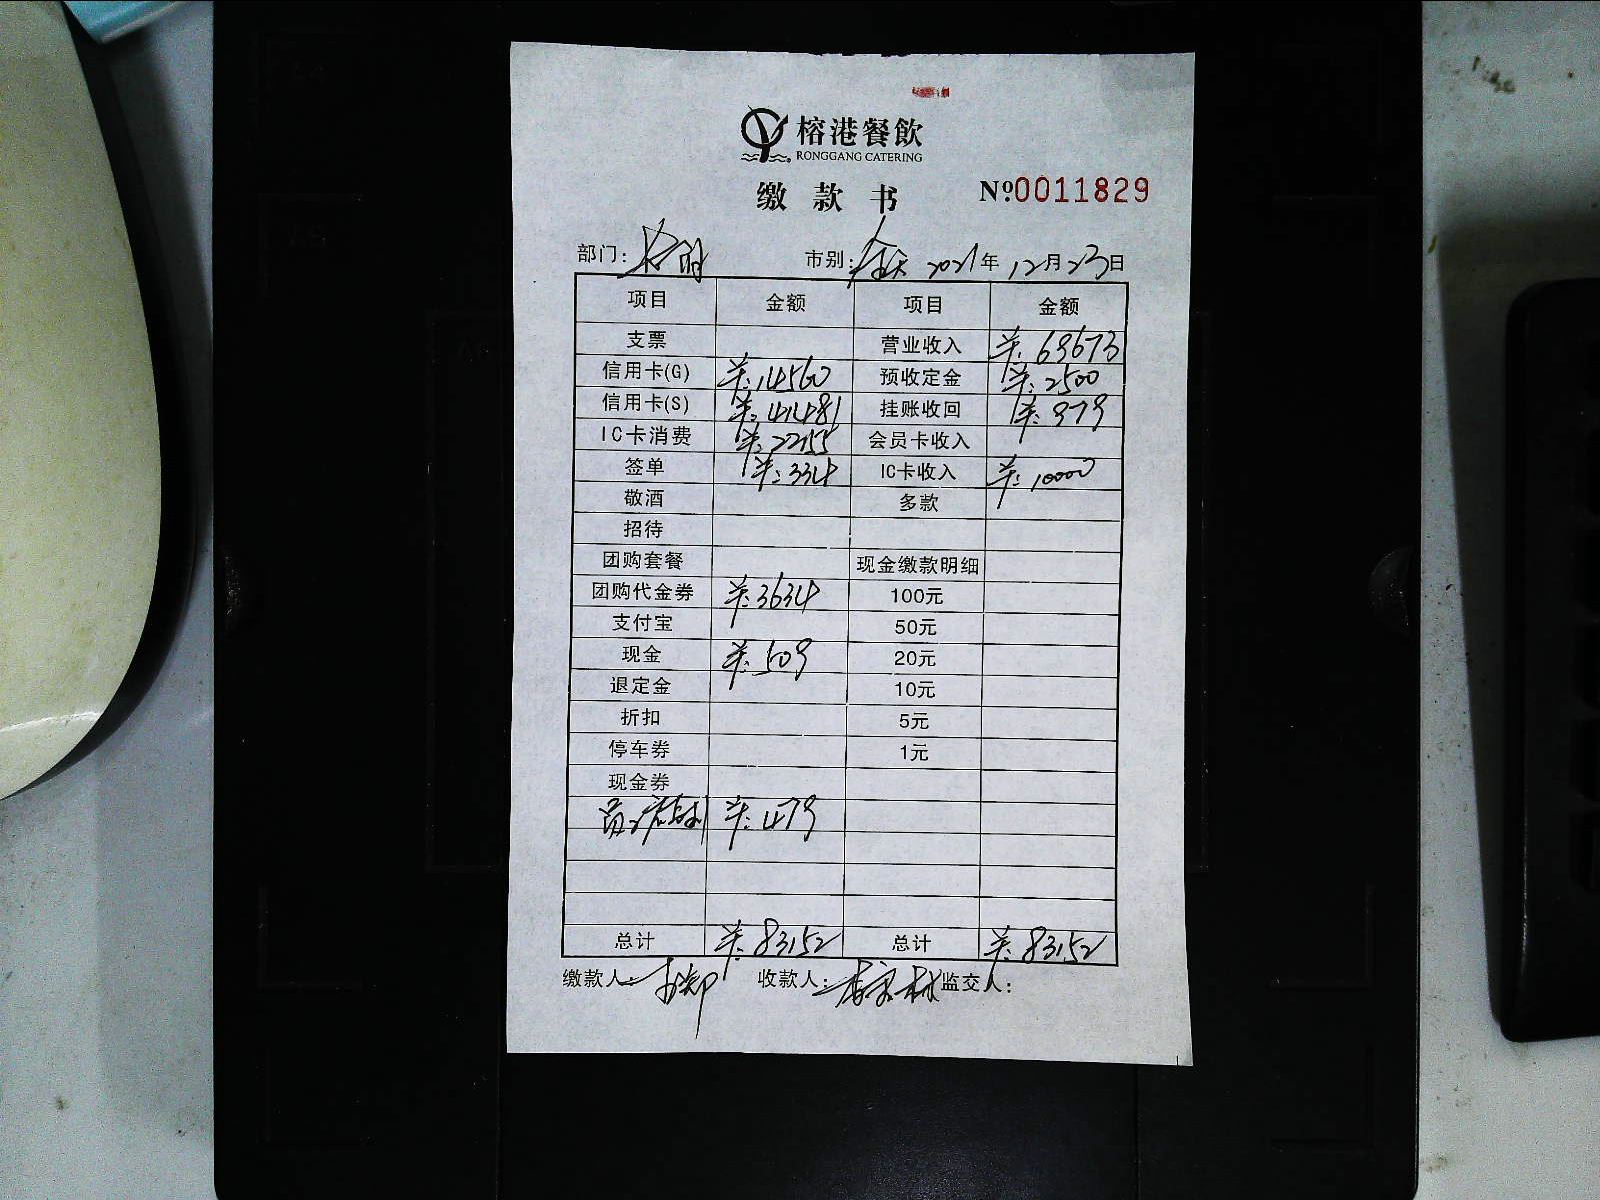 榕港餐飲
RONGGANG CATERING
缴款书 Nº0011829
部门: 市别: 全天 2021年12月23日
项目 金额 项目 金额
支票 营业收入 ¥:69673
信用卡(G) ¥:14560 预收定金 ¥:2500
信用卡(S) ¥:41481 挂账收回 ¥:979
IC卡消费 ¥:22155 会员卡收入
签单 ¥:334 IC卡收入 ¥:10000
敬酒 多款
招待
团购套餐 现金缴款明细
团购代金券 ¥:3634 100元
支付宝 50元
现金 ¥:509 20元
退定金 10元
折扣 5元
停车券 1元
现金券
¥:479
总计 ¥:83152 总计 ¥:83152
缴款人: 收款人: 监交人: